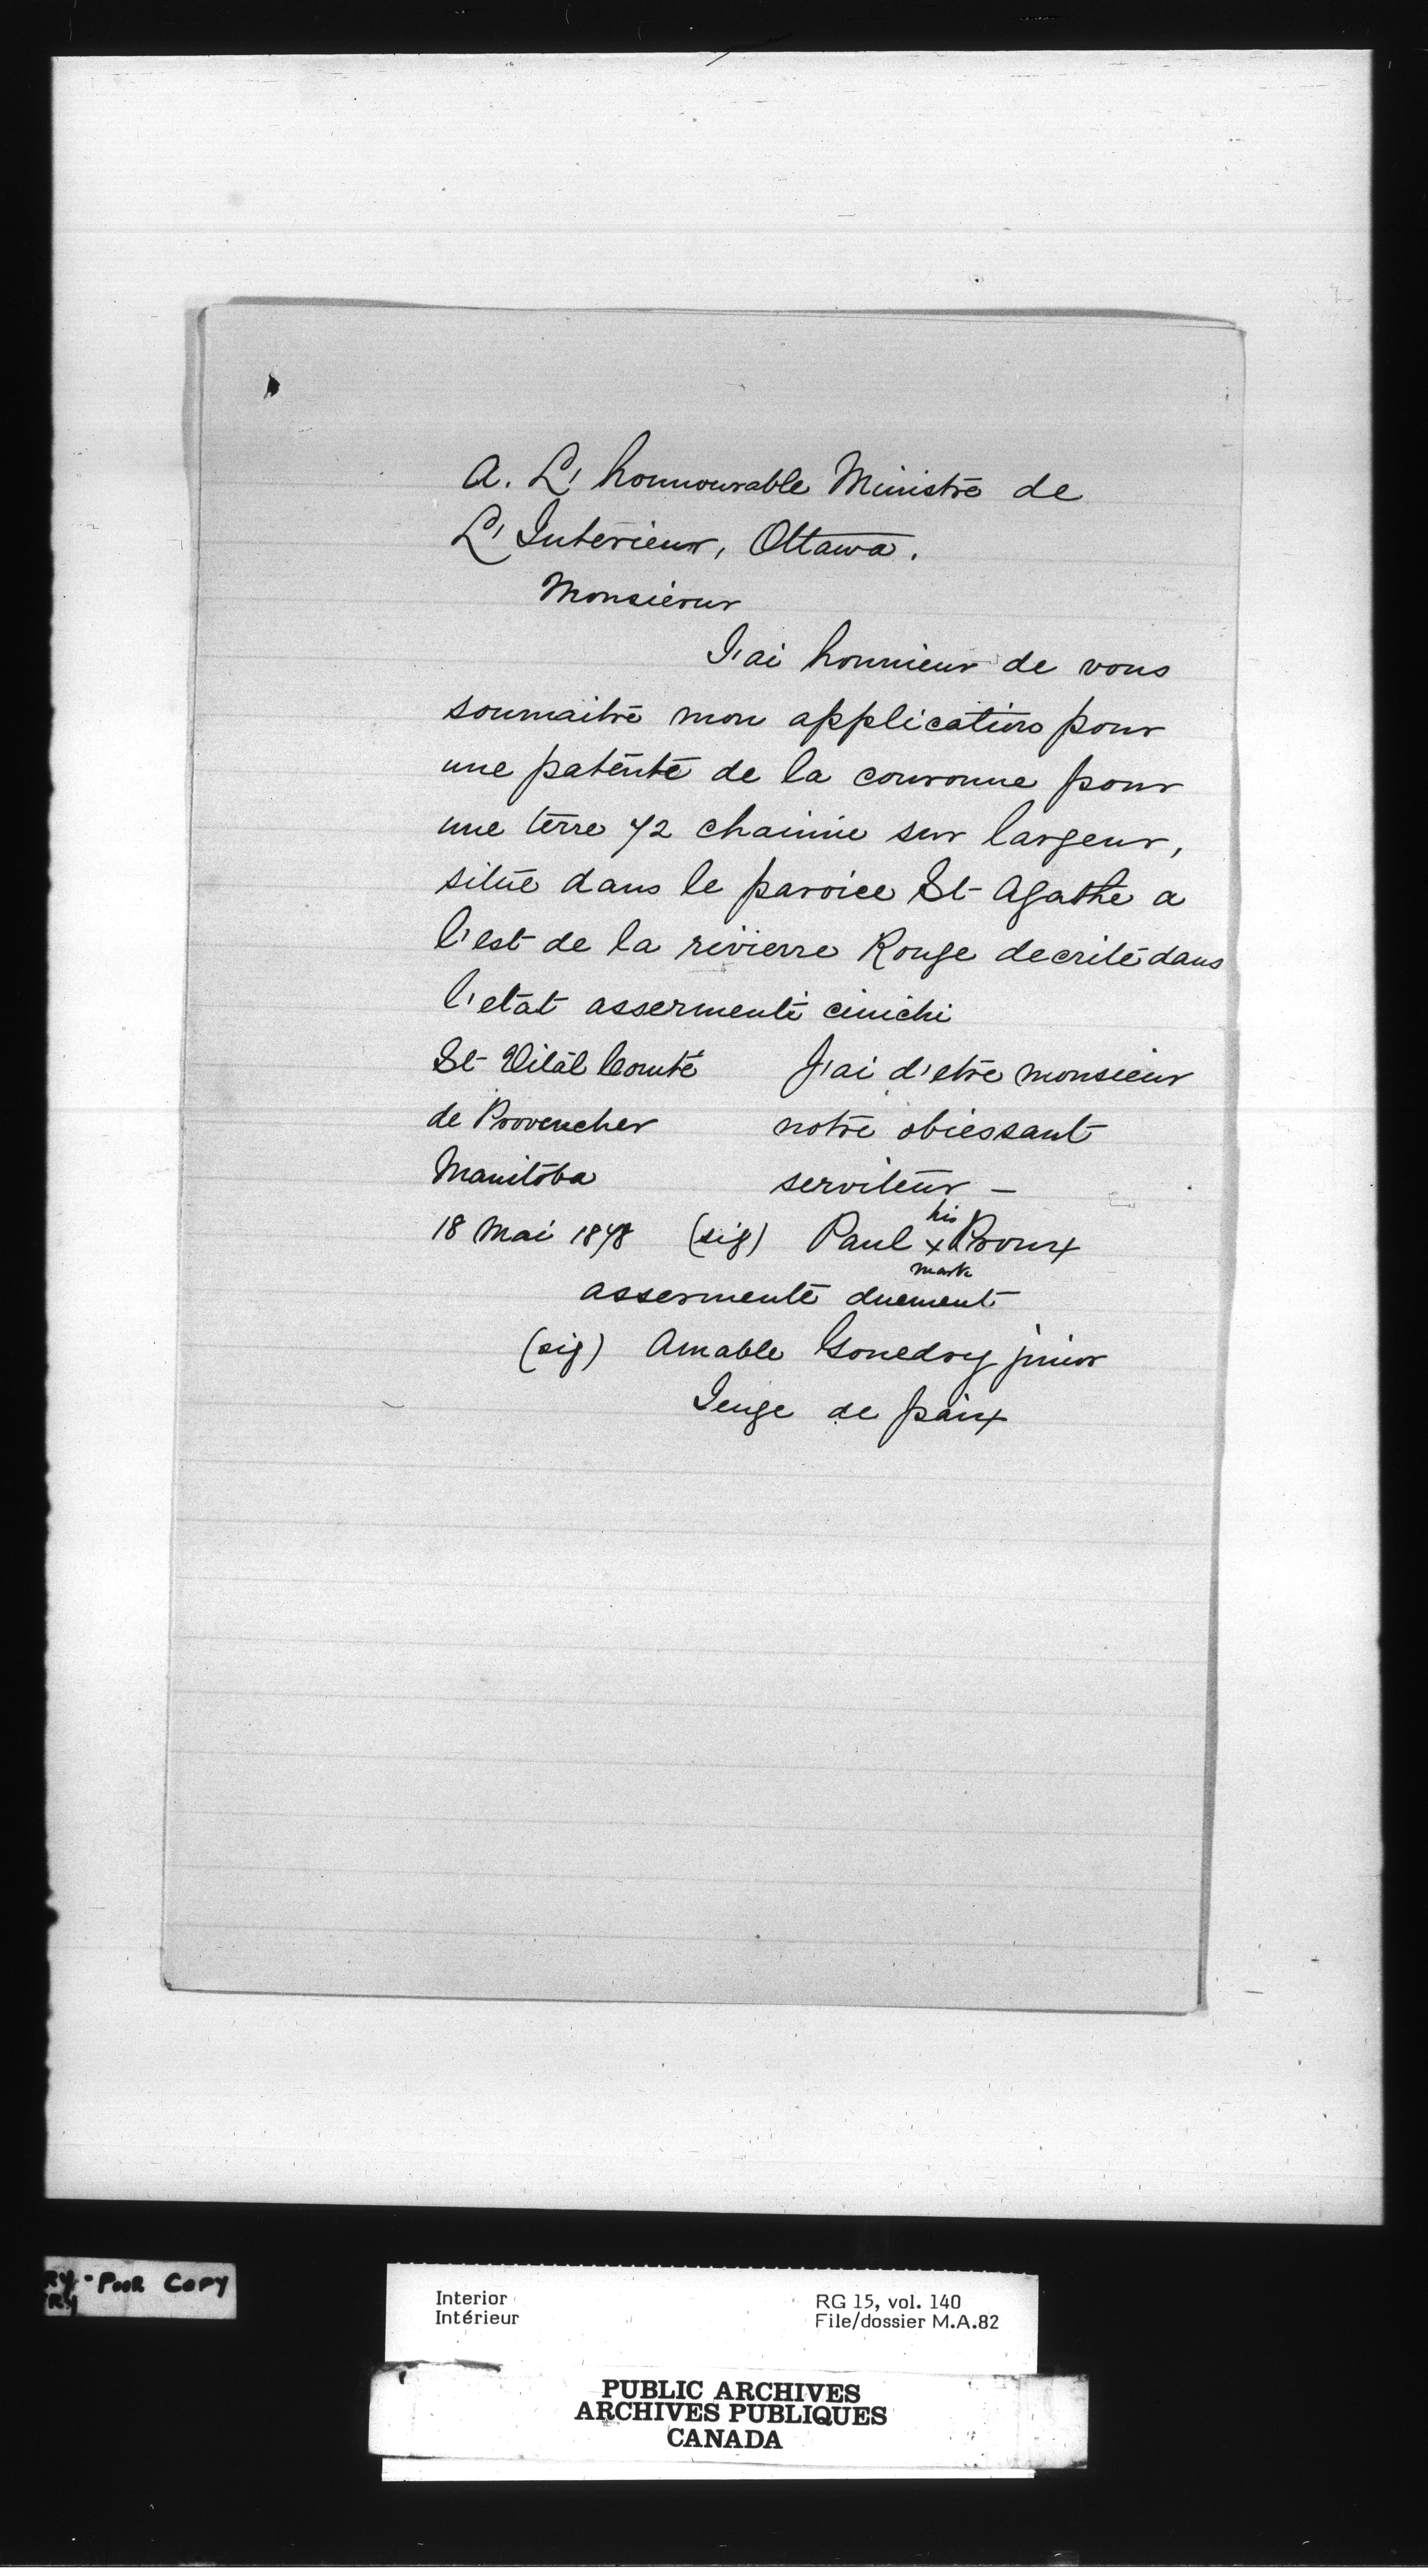 A. L' honnourable Ministre de
L' Intérieur, Ottawa.
Monsieur
J'ai honnieur de vous
soumaitre mon application pour
une patente de la couronne pour
une terre 42 chainie sur largeur,
située dans le paroice St Agathe a
l'est de la rivierre Rouge decrite dans
l'etat assermenté cinichi
St Vital Comté J'ai d'etre monsieur
de Provencher notre obiessant
Manitoba serviteur —
18 Mai 1878 (sig) Paul his x mark Proux
assermenté duement
(sig) Amable Gouedry junior
Jeuge de paix
RY - POOR COPY
RY
Interior RG 15, vol. 140
Intérieur File/dossier M.A.82
PUBLIC ARCHIVES
ARCHIVES PUBLIQUES
CANADA